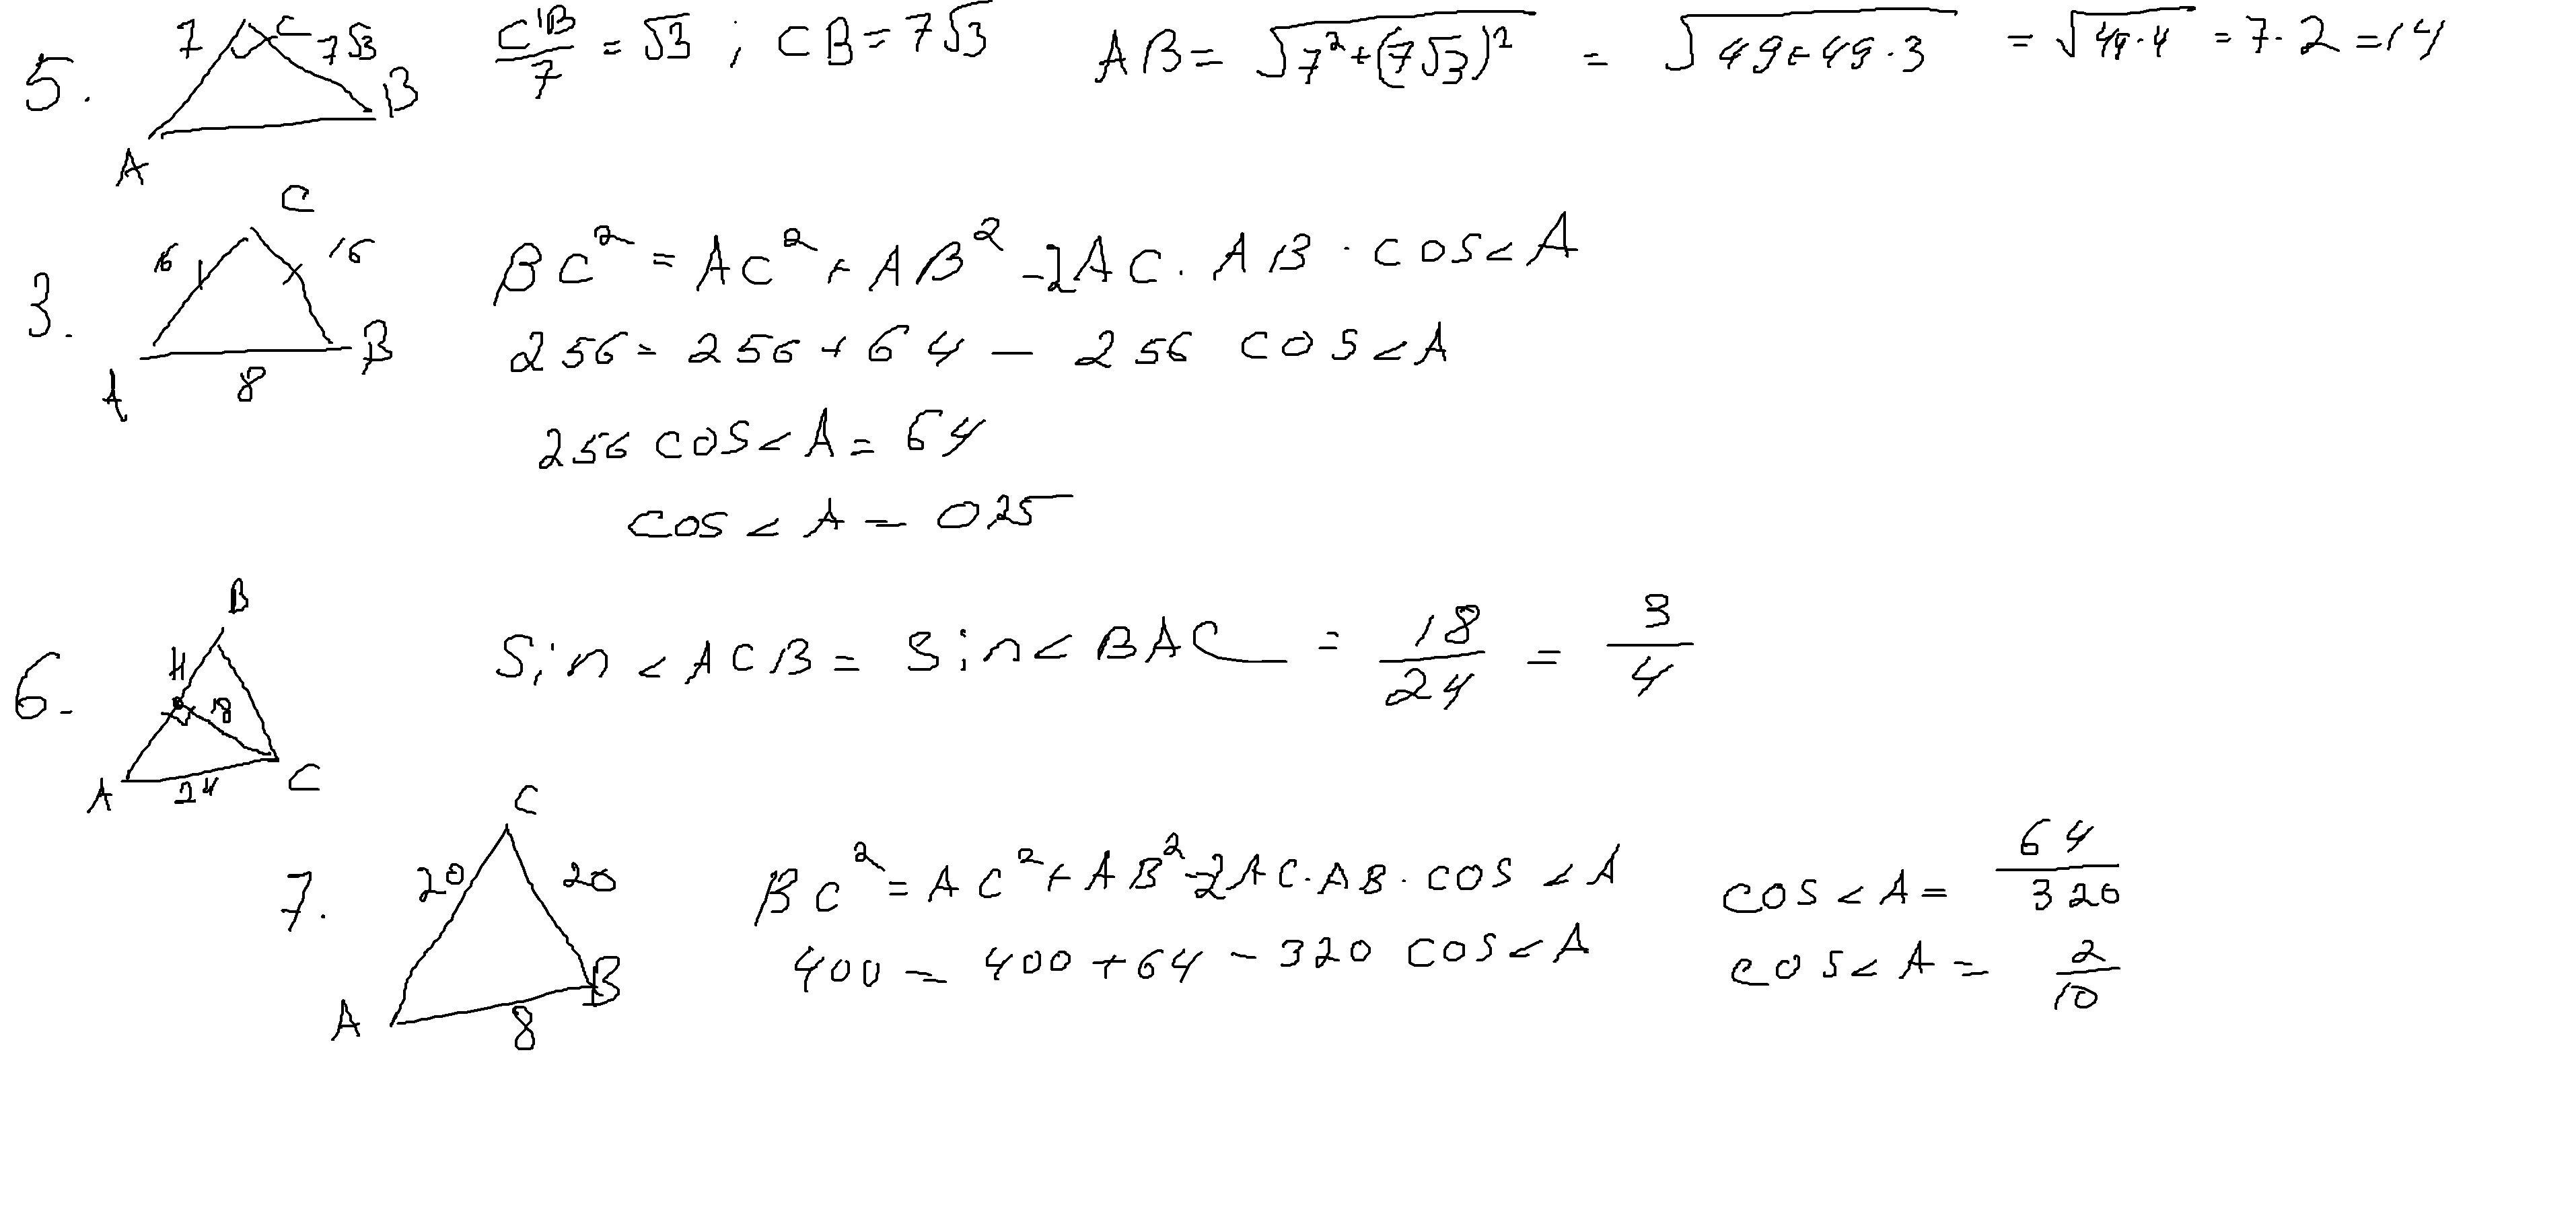 5. 7 C 7√3 A B C'B/7 = √3 ; CB = 7√3 AB = √(7²+(7√3)²) = √(49+49·3) = √(49·4) = 7·2 = 14
3. C 16 16 A 8 B BC² = AC² + AB² - 2AC · AB · cos<A
256 = 256 + 64 - 256 cos<A
256 cos<A = 64
cos<A = 025
6. B H 18 A 24 C Sin<ACB = Sin<BAC = 18/24 = 3/4
7. C 20 20 A 8 B BC² = AC² + AB² - 2AC·AB·cos<A cos<A = 64/320
400 = 400 + 64 - 320 cos<A cos<A = 2/10